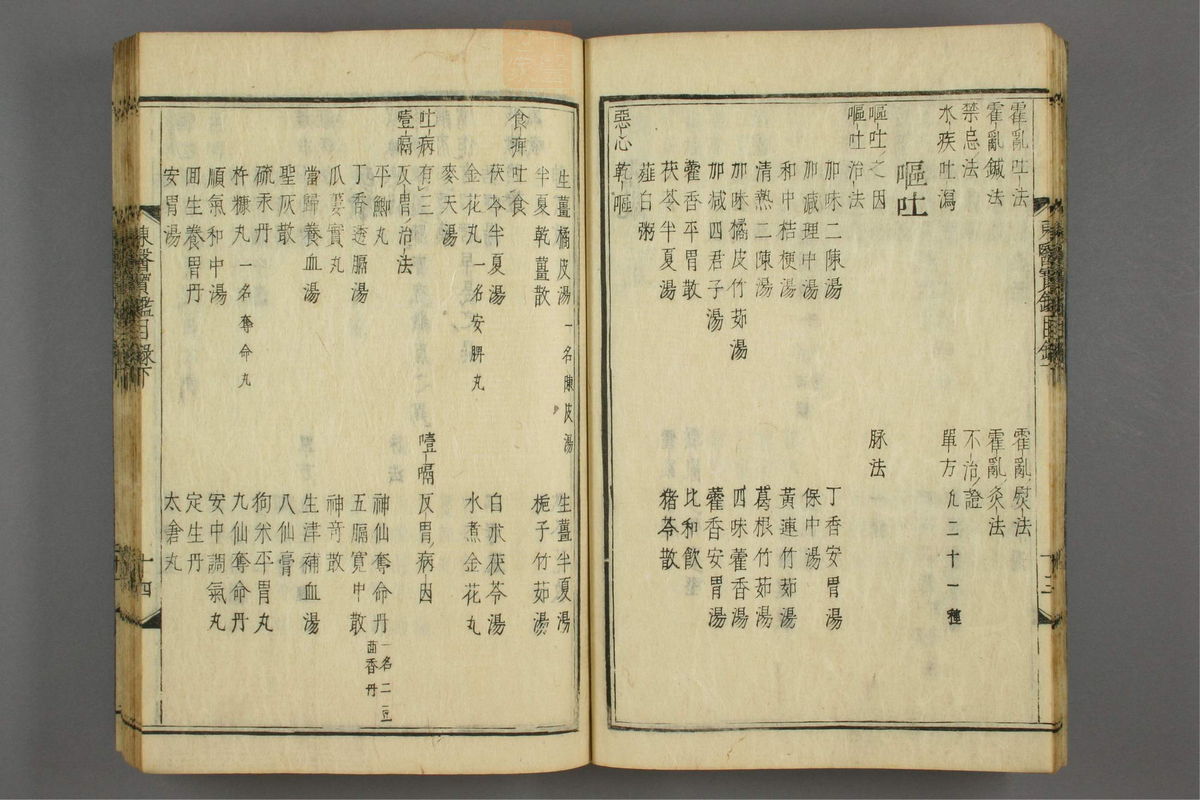 霍亂吐法　霍亂熨法
霍亂鍼法　霍亂灸法
禁忌法　不治證
水疾吐瀉　單方凡二十一種
嘔吐
嘔吐之因　脉法
嘔吐治法
加味二陳湯　丁香安胃湯
加減理中湯　保中湯
和中桔梗湯　黃連竹茹湯
清熱二陳湯　葛根竹茹湯
加味橘皮竹茹湯　四味藿香湯
加減四君子湯　藿香安胃湯
藿香平胃散　比和飮
茯苓半夏湯　猪苓散
薤白粥
惡心　乾嘔
東醫寶鑑目錄下
十三
生薑橘皮湯一名陳皮湯　生薑半夏湯
半夏乾薑散　梔子竹茹湯
食痹吐食
茯苓半夏湯　白朮茯苓湯
金花丸一名安脾丸　水煮金花丸
麥天湯
吐病有三　噎膈反胃病因
噎膈反胃治法
平鯽丸　神仙奪命丹一名二豆茴香丹
丁香透膈湯　五膈寬中散
瓜蔞實丸　神奇散
當歸養血湯　生津補血湯
聖灰散　八仙膏
硫汞丹　狗米平胃丸
杵糠丸一名奪命丸　九仙奪命丹
順氣和中湯　安中調氣丸
回生養胃丹　定生丹
安胃湯　太倉丸
東醫寶鑑目錄下
十四